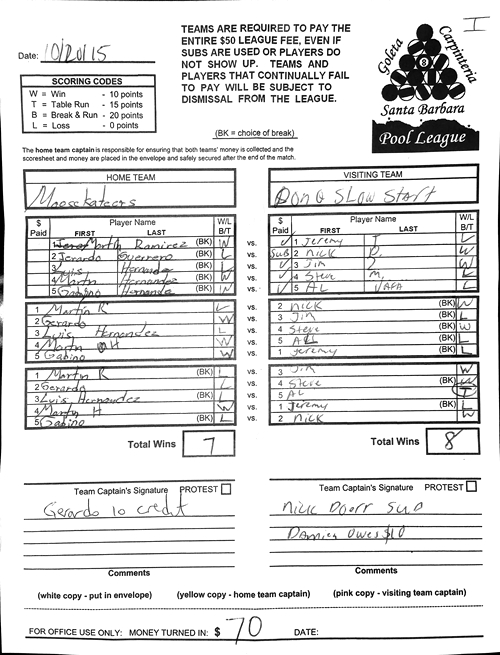 I
Date: 10/20/15
TEAMS ARE REQUIRED TO PAY THE
ENTIRE $50 LEAGUE FEE, EVEN IF
SUBS ARE USED OR PLAYERS DO
NOT SHOW UP. TEAMS AND
PLAYERS THAT CONTINUALLY FAIL
TO PAY WILL BE SUBJECT TO
DISMISSAL FROM THE LEAGUE.
Goleta
Carpinteria
8
Santa Barbara
Pool League
SCORING CODES
W = Win - 10 points
T = Table Run - 15 points
B = Break & Run - 20 points
L = Loss - 0 points
(BK = choice of break)
The home team captain is responsible for ensuring that both teams' money is collected and the
scoresheet and money are placed in the envelope and safely secured after the end of the match.
HOME TEAM
Moosekateers
$ Paid Player Name FIRST LAST W/L B/T
1 Martin Ramirez (BK) W vs.
2 Jerardo Guerrero (BK) L vs.
3 Luis Hernandez (BK) L vs.
4 Martin Hernandez (BK) W vs.
5 Gabino Hernandez (BK) W vs.
1 Martin R L vs.
2 Gerardo W vs.
3 Luis Hernandez L vs.
4 Martin H W vs.
5 Gabino W vs.
1 Martin R (BK) L vs.
2 Gerardo (BK) L vs.
3 Luis Hernandez (BK) L vs.
4 Martin H (BK) W vs.
5 Gabino (BK) L vs.
Total Wins 7
VISITING TEAM
Don O Slow Start
$ Paid Player Name FIRST LAST W/L B/T
✓ 1 Jeremy T. L
Sub 2 Nick D. W
✓ 3 Jim W
✓ 4 Steve M. L
✓ 5 AL L
2 Nick (BK) W
3 Jim (BK) L
4 Steve (BK) W
5 AL (BK) L
1 Jeremy (BK) L
3 Jim W
4 Steve (BK) W
5 AL T
1 Jeremy (BK) L
2 Nick W
Total Wins 8
Team Captain's Signature PROTEST
Gerardo 10 credit
Comments
Team Captain's Signature PROTEST
Nick Doerr Sub
Damien owes $10
Comments
(white copy - put in envelope) (yellow copy - home team captain) (pink copy - visiting team captain)
FOR OFFICE USE ONLY: MONEY TURNED IN: $ 70 DATE: